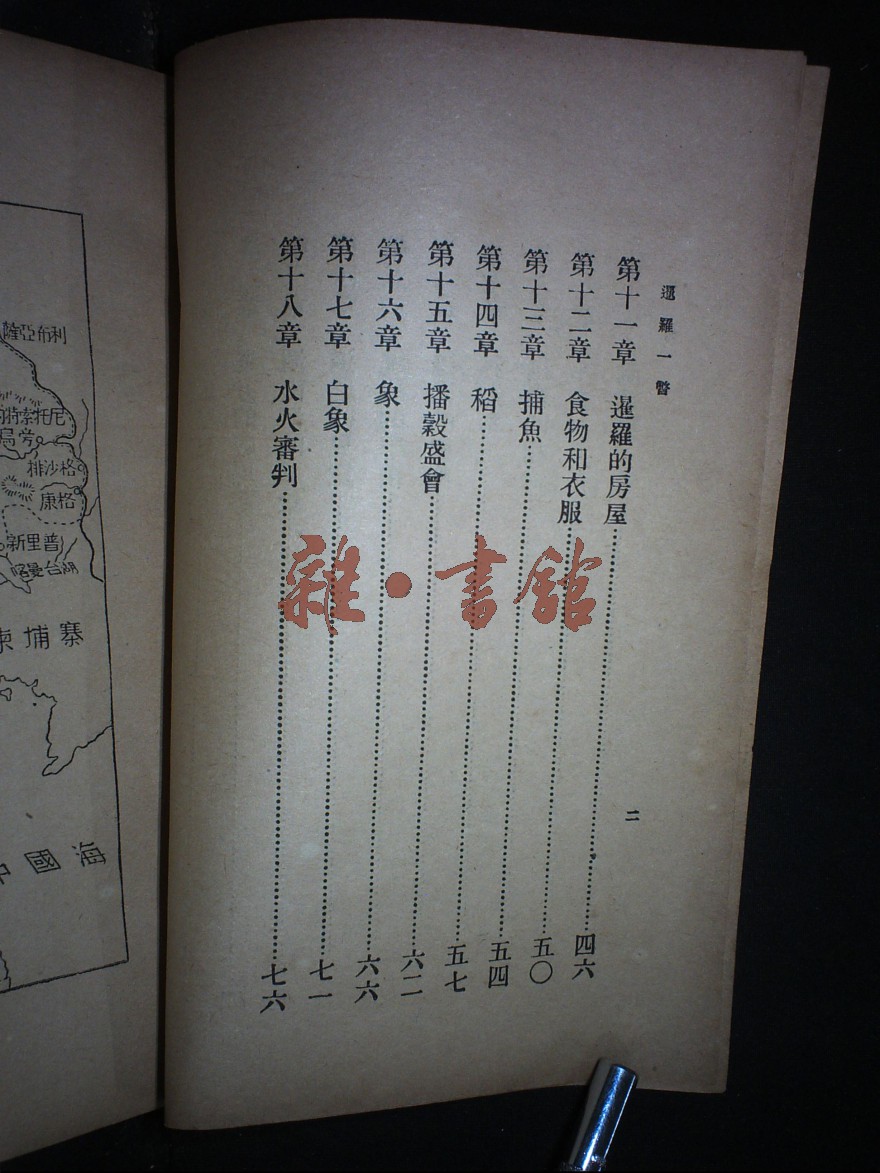 暹羅一瞥
二
第十一章 暹羅的房屋……四六
第十二章 食物和衣服……五〇
第十三章 捕魚……五四
第十四章 稻……五七
第十五章 播穀盛會……六二
第十六章 象……六六
第十七章 白象……七一
第十八章 水火審判……七六
雜·書館
薩亞布利
尼托索特
排沙格
康格
新里普
寨埔柬
海國中